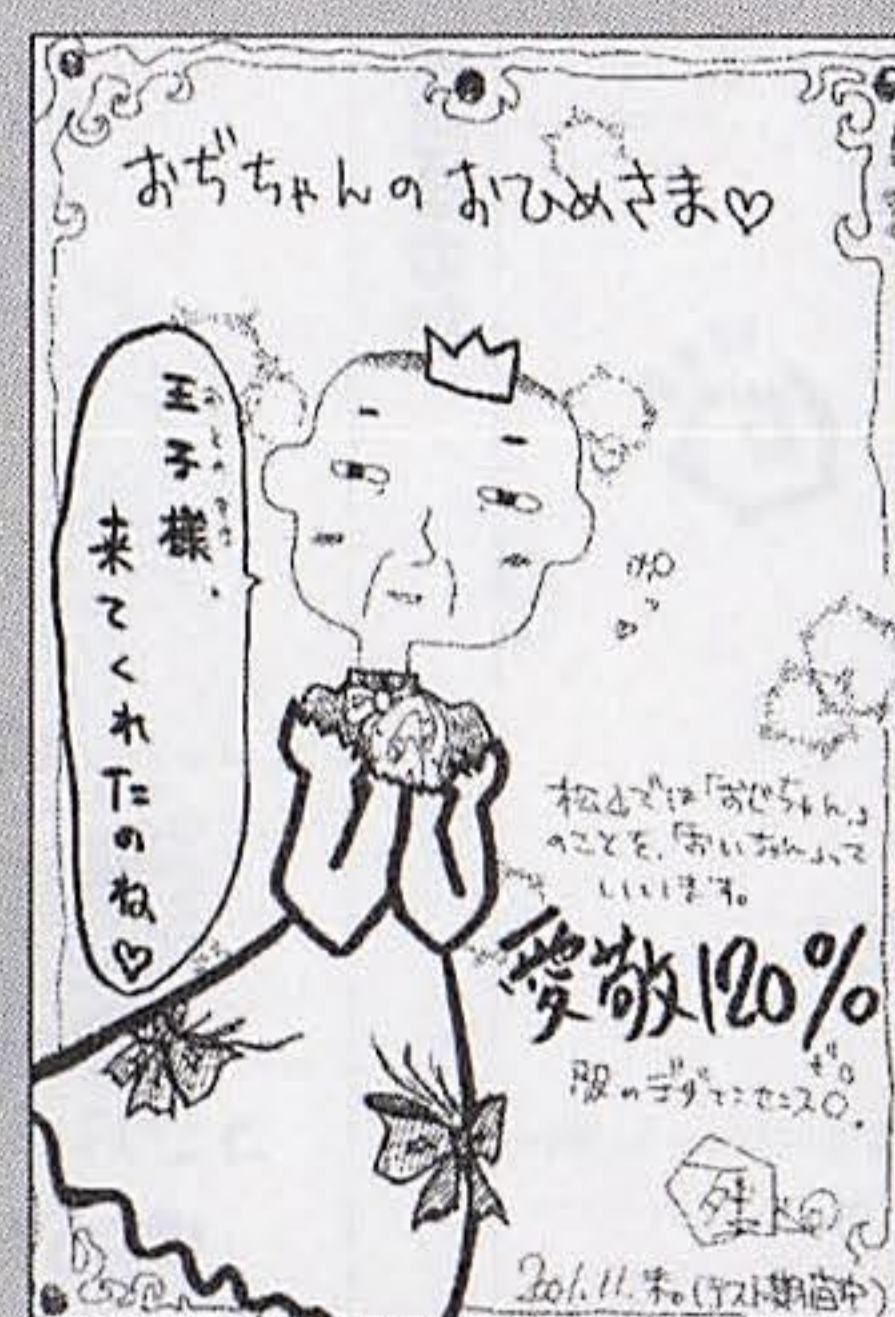 おぢちゃんの おひめさま♡
王子様、
来てくれたのね♡
松山では「おじちゃん」
のことを、「おいちゃん」って
いいます。
愛敬120%
服の
2001.11.末。(テスト期間中)